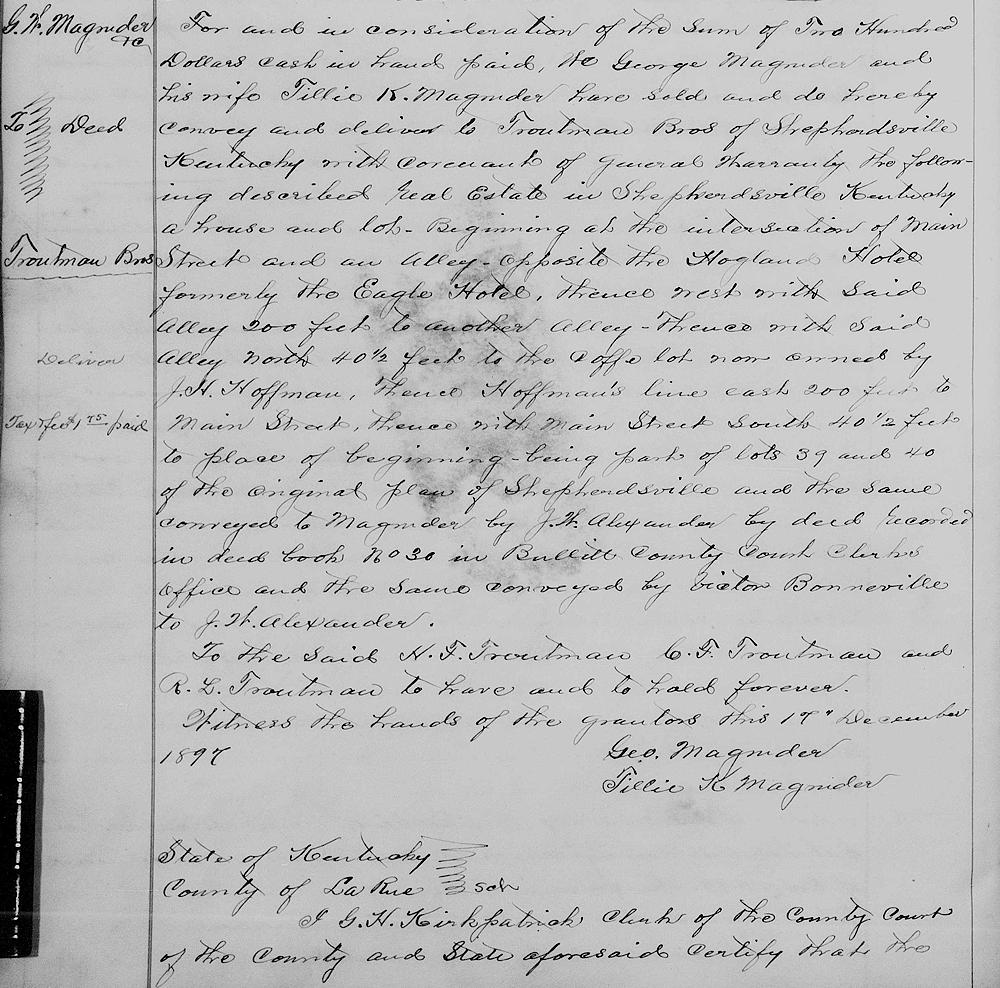 G. W. Magruder
&c
To Deed
Troutman Bros
Deliver
Tax & fee $1 75 paid
For and in consideration of the Sum of Two Hundred
Dollars cash in hand paid, We George Magruder and
his wife Tillie K. Magruder have sold and do hereby
convey and deliver to Troutman Bros of Shepherdsville
Kentucky with covenant of General Warranty the follow-
ing described Real Estate in Shepherdsville Kentucky
a house and lot - Beginning at the intersection of Main
Street and an Alley - opposite the Hogland Hotel
formerly the Eagle Hotel, thence west with said
Alley 200 feet to another Alley - thence with said
Alley North 40 1/2 feet to the Coffe lot now owned by
J. H. Hoffman, thence Hoffman's line east 200 feet to
Main Street, thence with Main Street South 40 1/2 feet
to place of beginning - being part of lots 39 and 40
of the original plan of Shepherdsville and the same
conveyed to Magruder by J. W. Alexander by deed recorded
in deed book No 30 in Bullitt County Court Clerks
Office and the same conveyed by Victor Bonneville
to J. W. Alexander.
To the said H. F. Troutman C. F. Troutman and
R. L. Troutman to have and to hold forever.
Witness the hands of the grantors this 17" December
1897
Geo. Magruder
Tillie K Magruder
State of Kentucky
County of La Rue sch
I G. H. Kirkpatrick Clerk of the County Court
of the County and State aforesaid certify that the